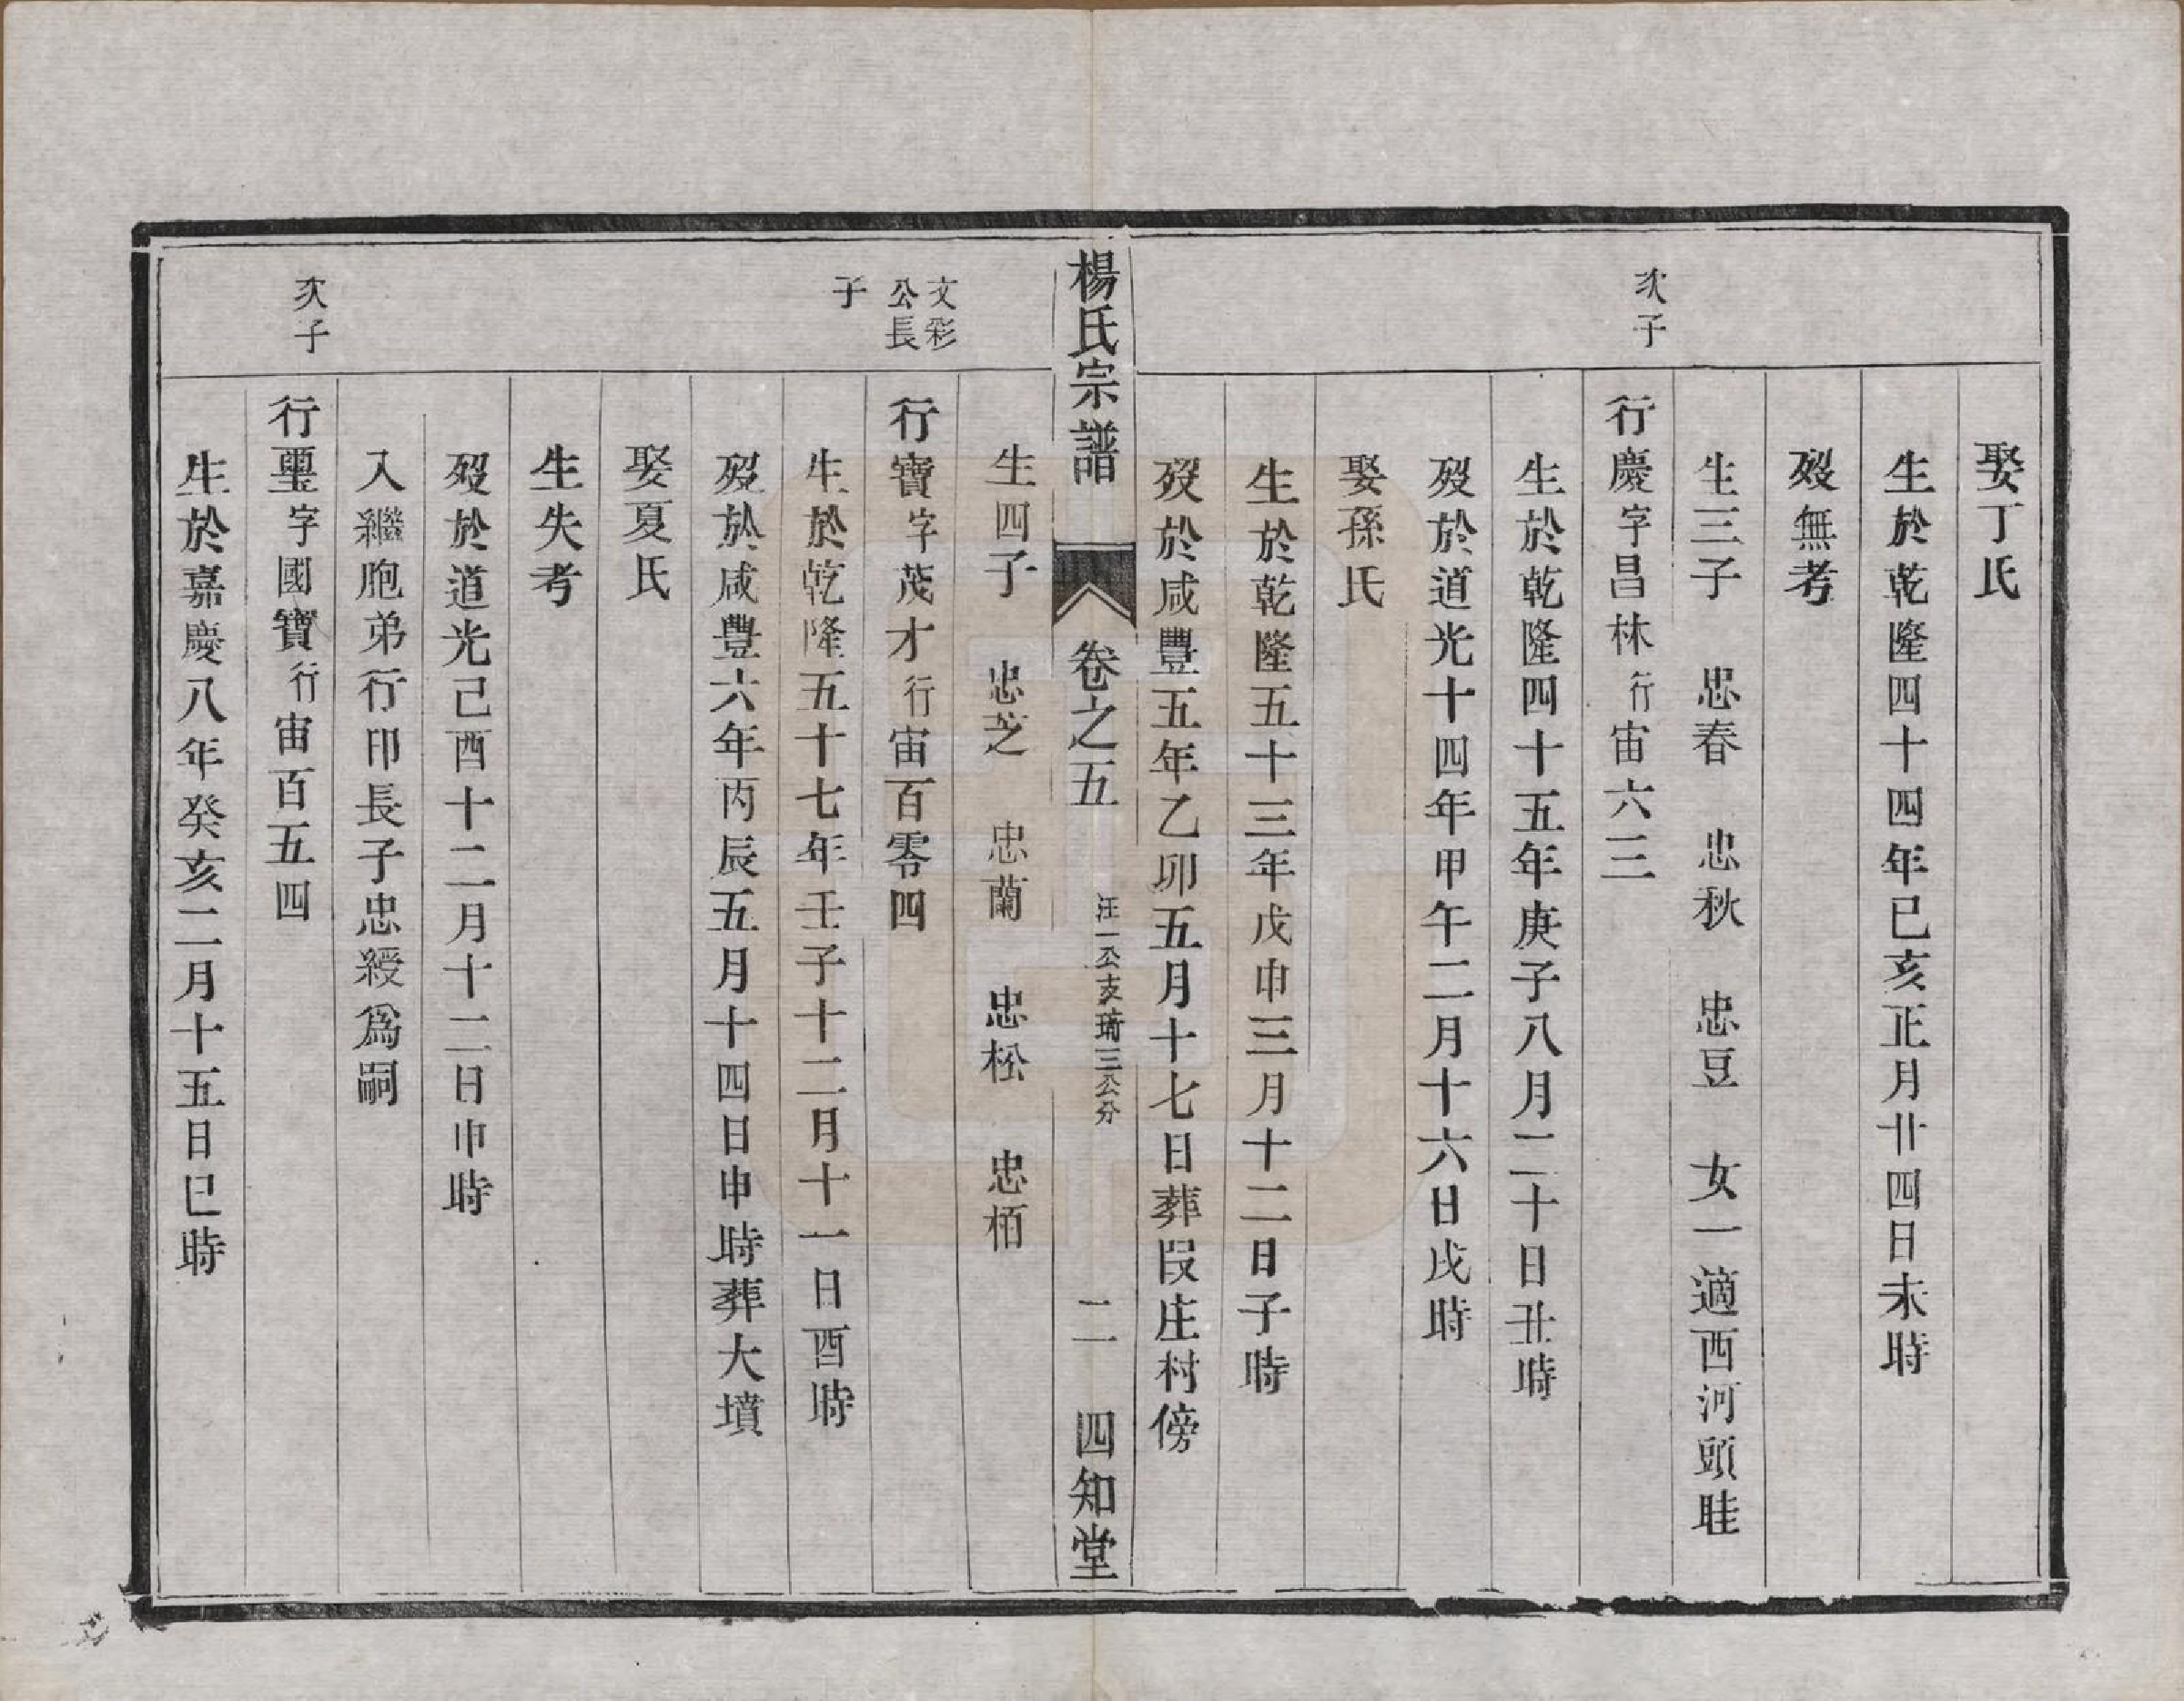 娶丁氏
生於乾隆四十四年己亥正月廿四日未時
歿無考
生三子　忠春　忠秋　忠豆　女一適西河頭眭
次子
行慶字昌林行宙六三
生於乾隆四十五年庚子八月二十日丑時
歿於道光十四年甲午二月十六日戌時
娶孫氏
生於乾隆五十三年戊申三月十二日子時
歿於咸豐五年乙卯五月十七日葬段庄村傍
楊氏宗譜　卷之五　汪一公支璚三公分　二　四知堂
生四子　忠芝　忠蘭　忠松　忠栢
文彩公長子
行寶字茂才行宙百零四
生於乾隆五十七年壬子十二月十一日酉時
歿於咸豐六年丙辰五月十四日申時葬大墳
娶夏氏
生失考
歿於道光己酉十二月十二日申時
入繼胞弟行印長子忠綬爲嗣
次子
行璽字國寶行宙百五四
生於嘉慶八年癸亥二月十五日巳時